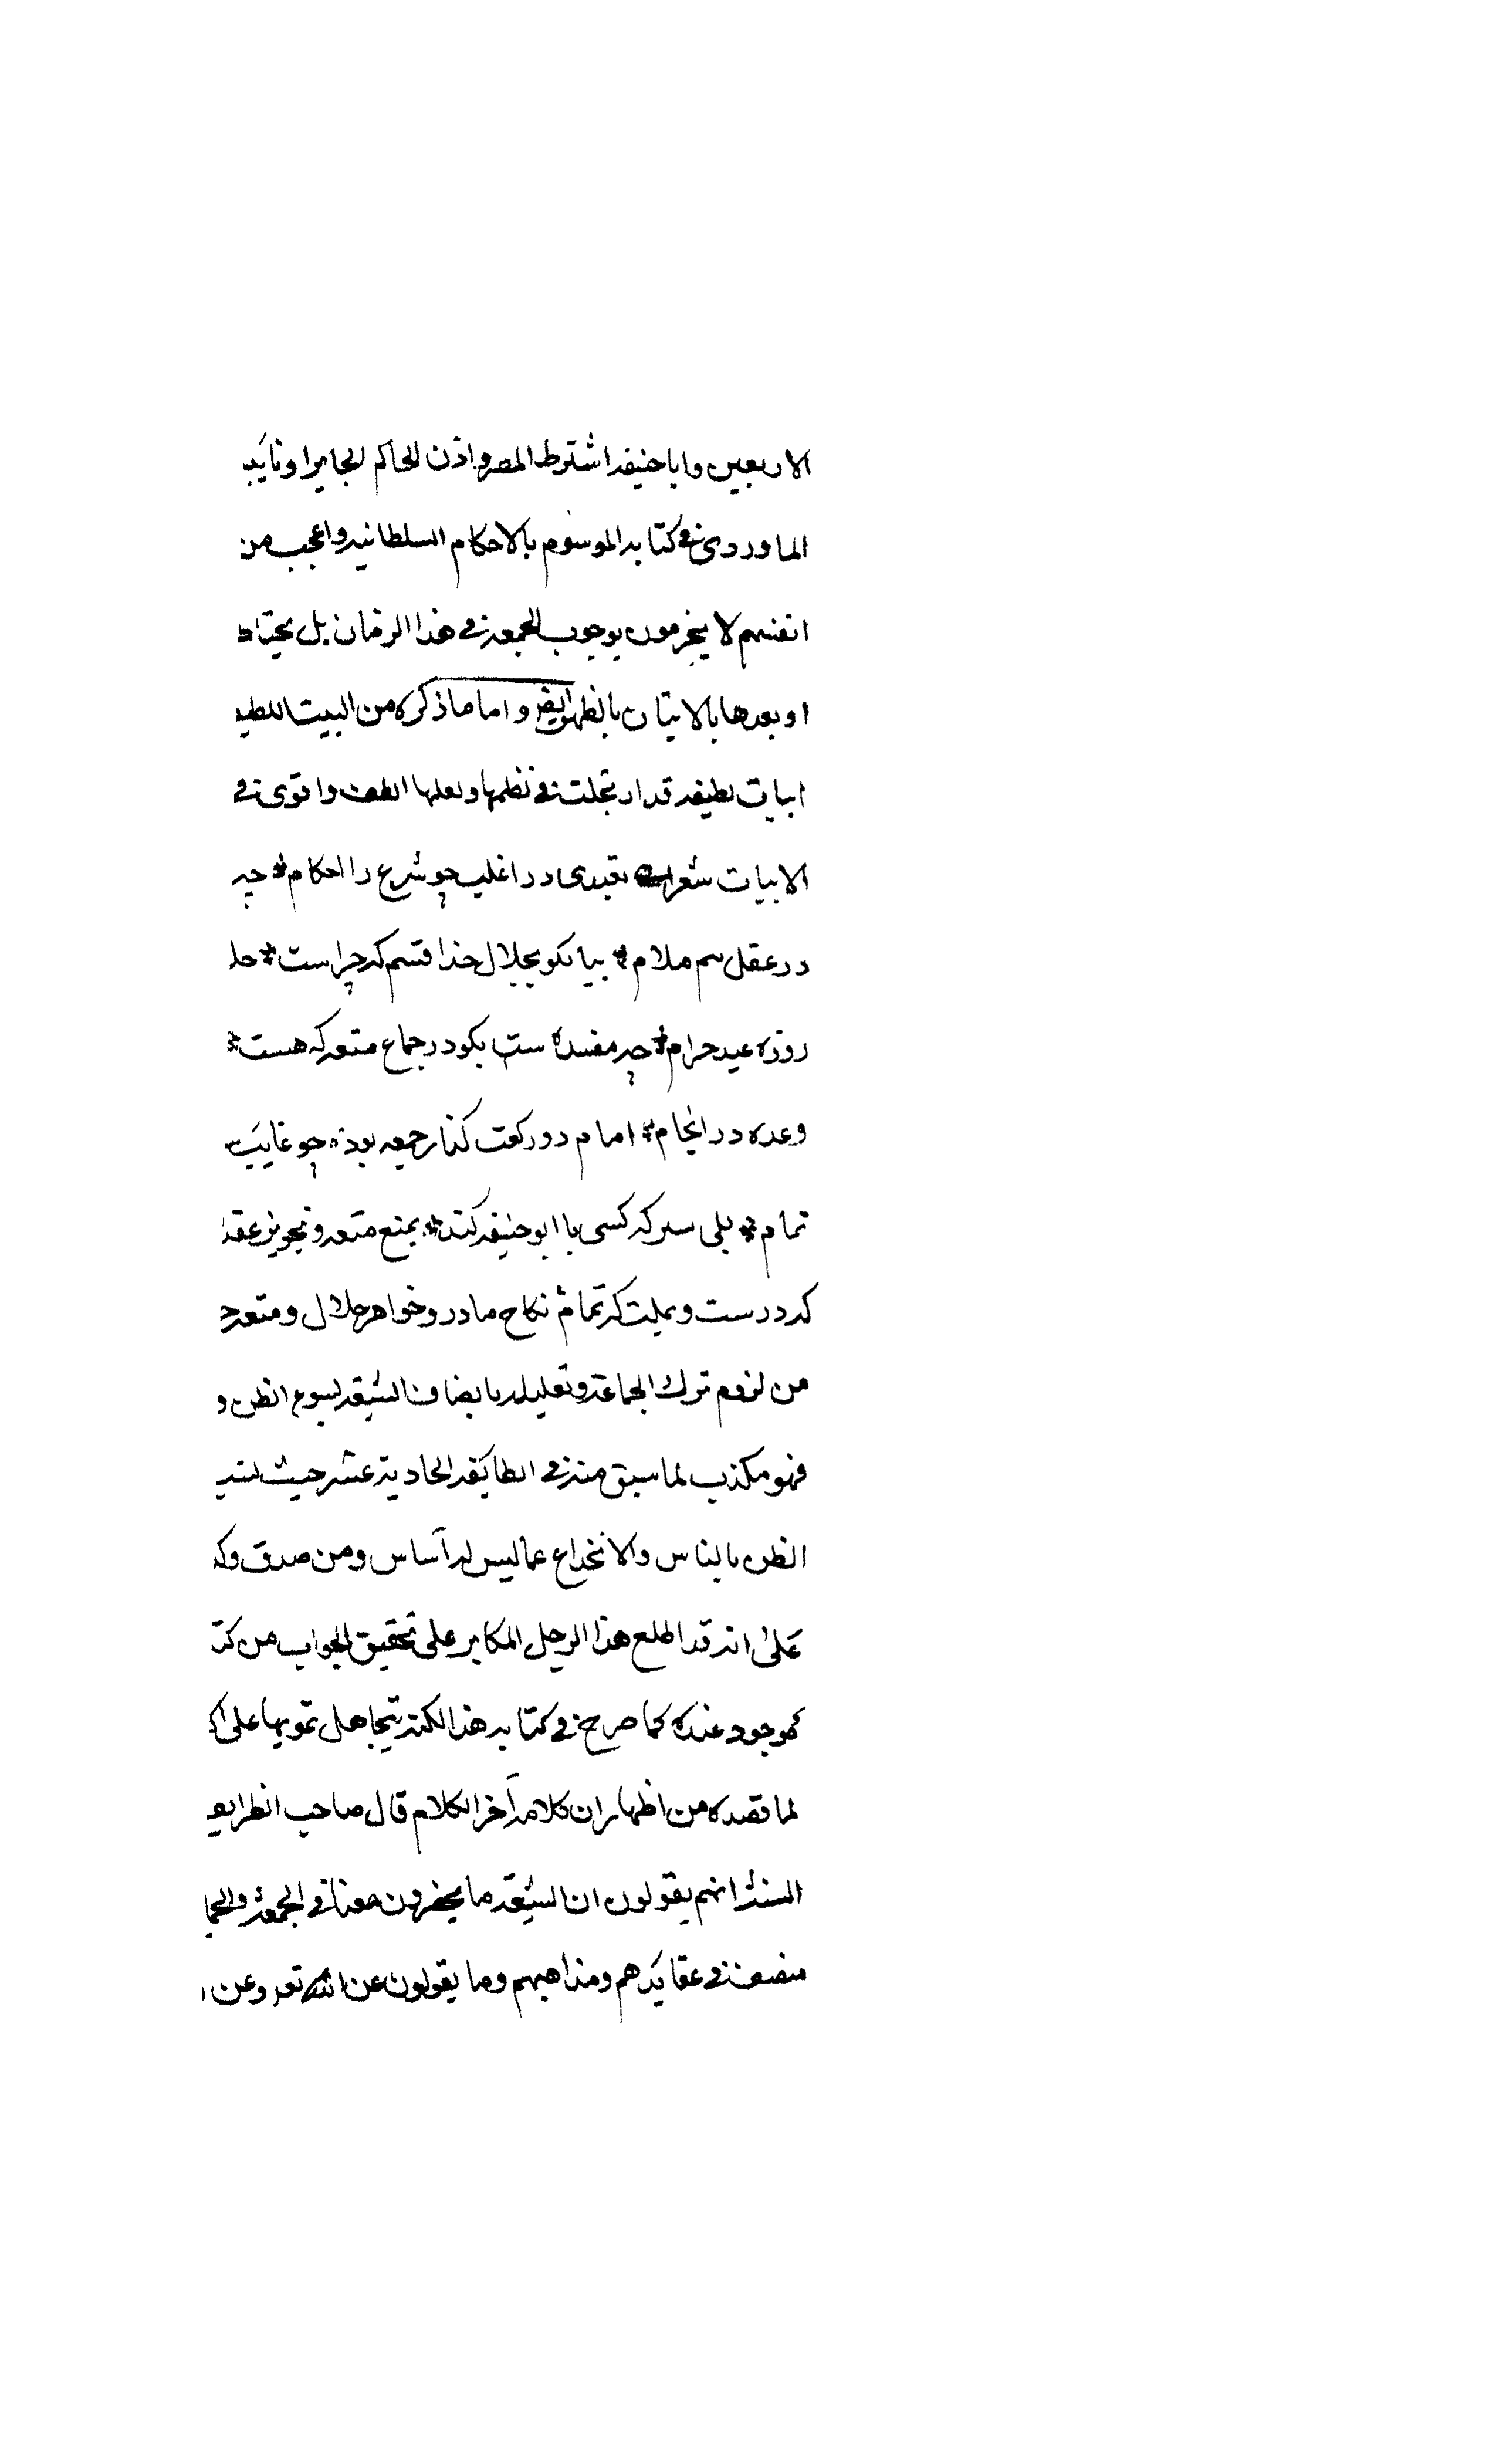 الاربعين وابا حنيفه اشترط المصر واذن الحاكم الجاير او نايب
الماوردي في كتابه الموسوم بالاحكام السلطانيه واعجب من
انفسهم لا يجزمون بوجوب الجمعه في هذا الزمان بل يحتاط
او بعدها بالاتيان بالظهر ايض واما ما ذكره من البيت اللطيف
ابيات لطيفه قد ارتجلت في نظمها ولعلها الطف واقوى في
الابيات شعر تعبدی در اغلب چو شرع را احکام * چه
در عقل هم ملام * بیا بکو بجلال خدا قسم که چراست * حلا
روزه عید حرام * چه مفسده است بکو در جماع متعه که هست *
وعده در انجام * امام دو رکعت کذار جمعه بود * چو غایب
تمام * بلی سرکه کسی با ابو حنیفه کند * بمنع متعه و تجویز عقد
که درست وملت که تمام نکاح مادر و خواهر حلال و متعه
من لزوم ترك الجماعة وتعليله باتصاف الشيعه بسوء الظن و
فهو مكذب لما سبق منه في الطايفه الحادية عشر حيث نسب
الظن بالناس والانخداع عما ليس له آساس ومن صدق وكذ
على انه قد اطلع هذا الرجل المكابر على تحقيق الجواب من كتـ
موجود عنده كما صرح في كتابه هذا لكنه يتجاهل تمويها على ا
لما قصده من اظهار ان كلامه آخر الكلام قال صاحب الطرايف
السنة انهم يقولون ان الشيعة ما يحضرون معنا في الجمعة والجما
منصف في عقايدهم ومذاهبهم وما يقولون عن الله تعه وعن ا